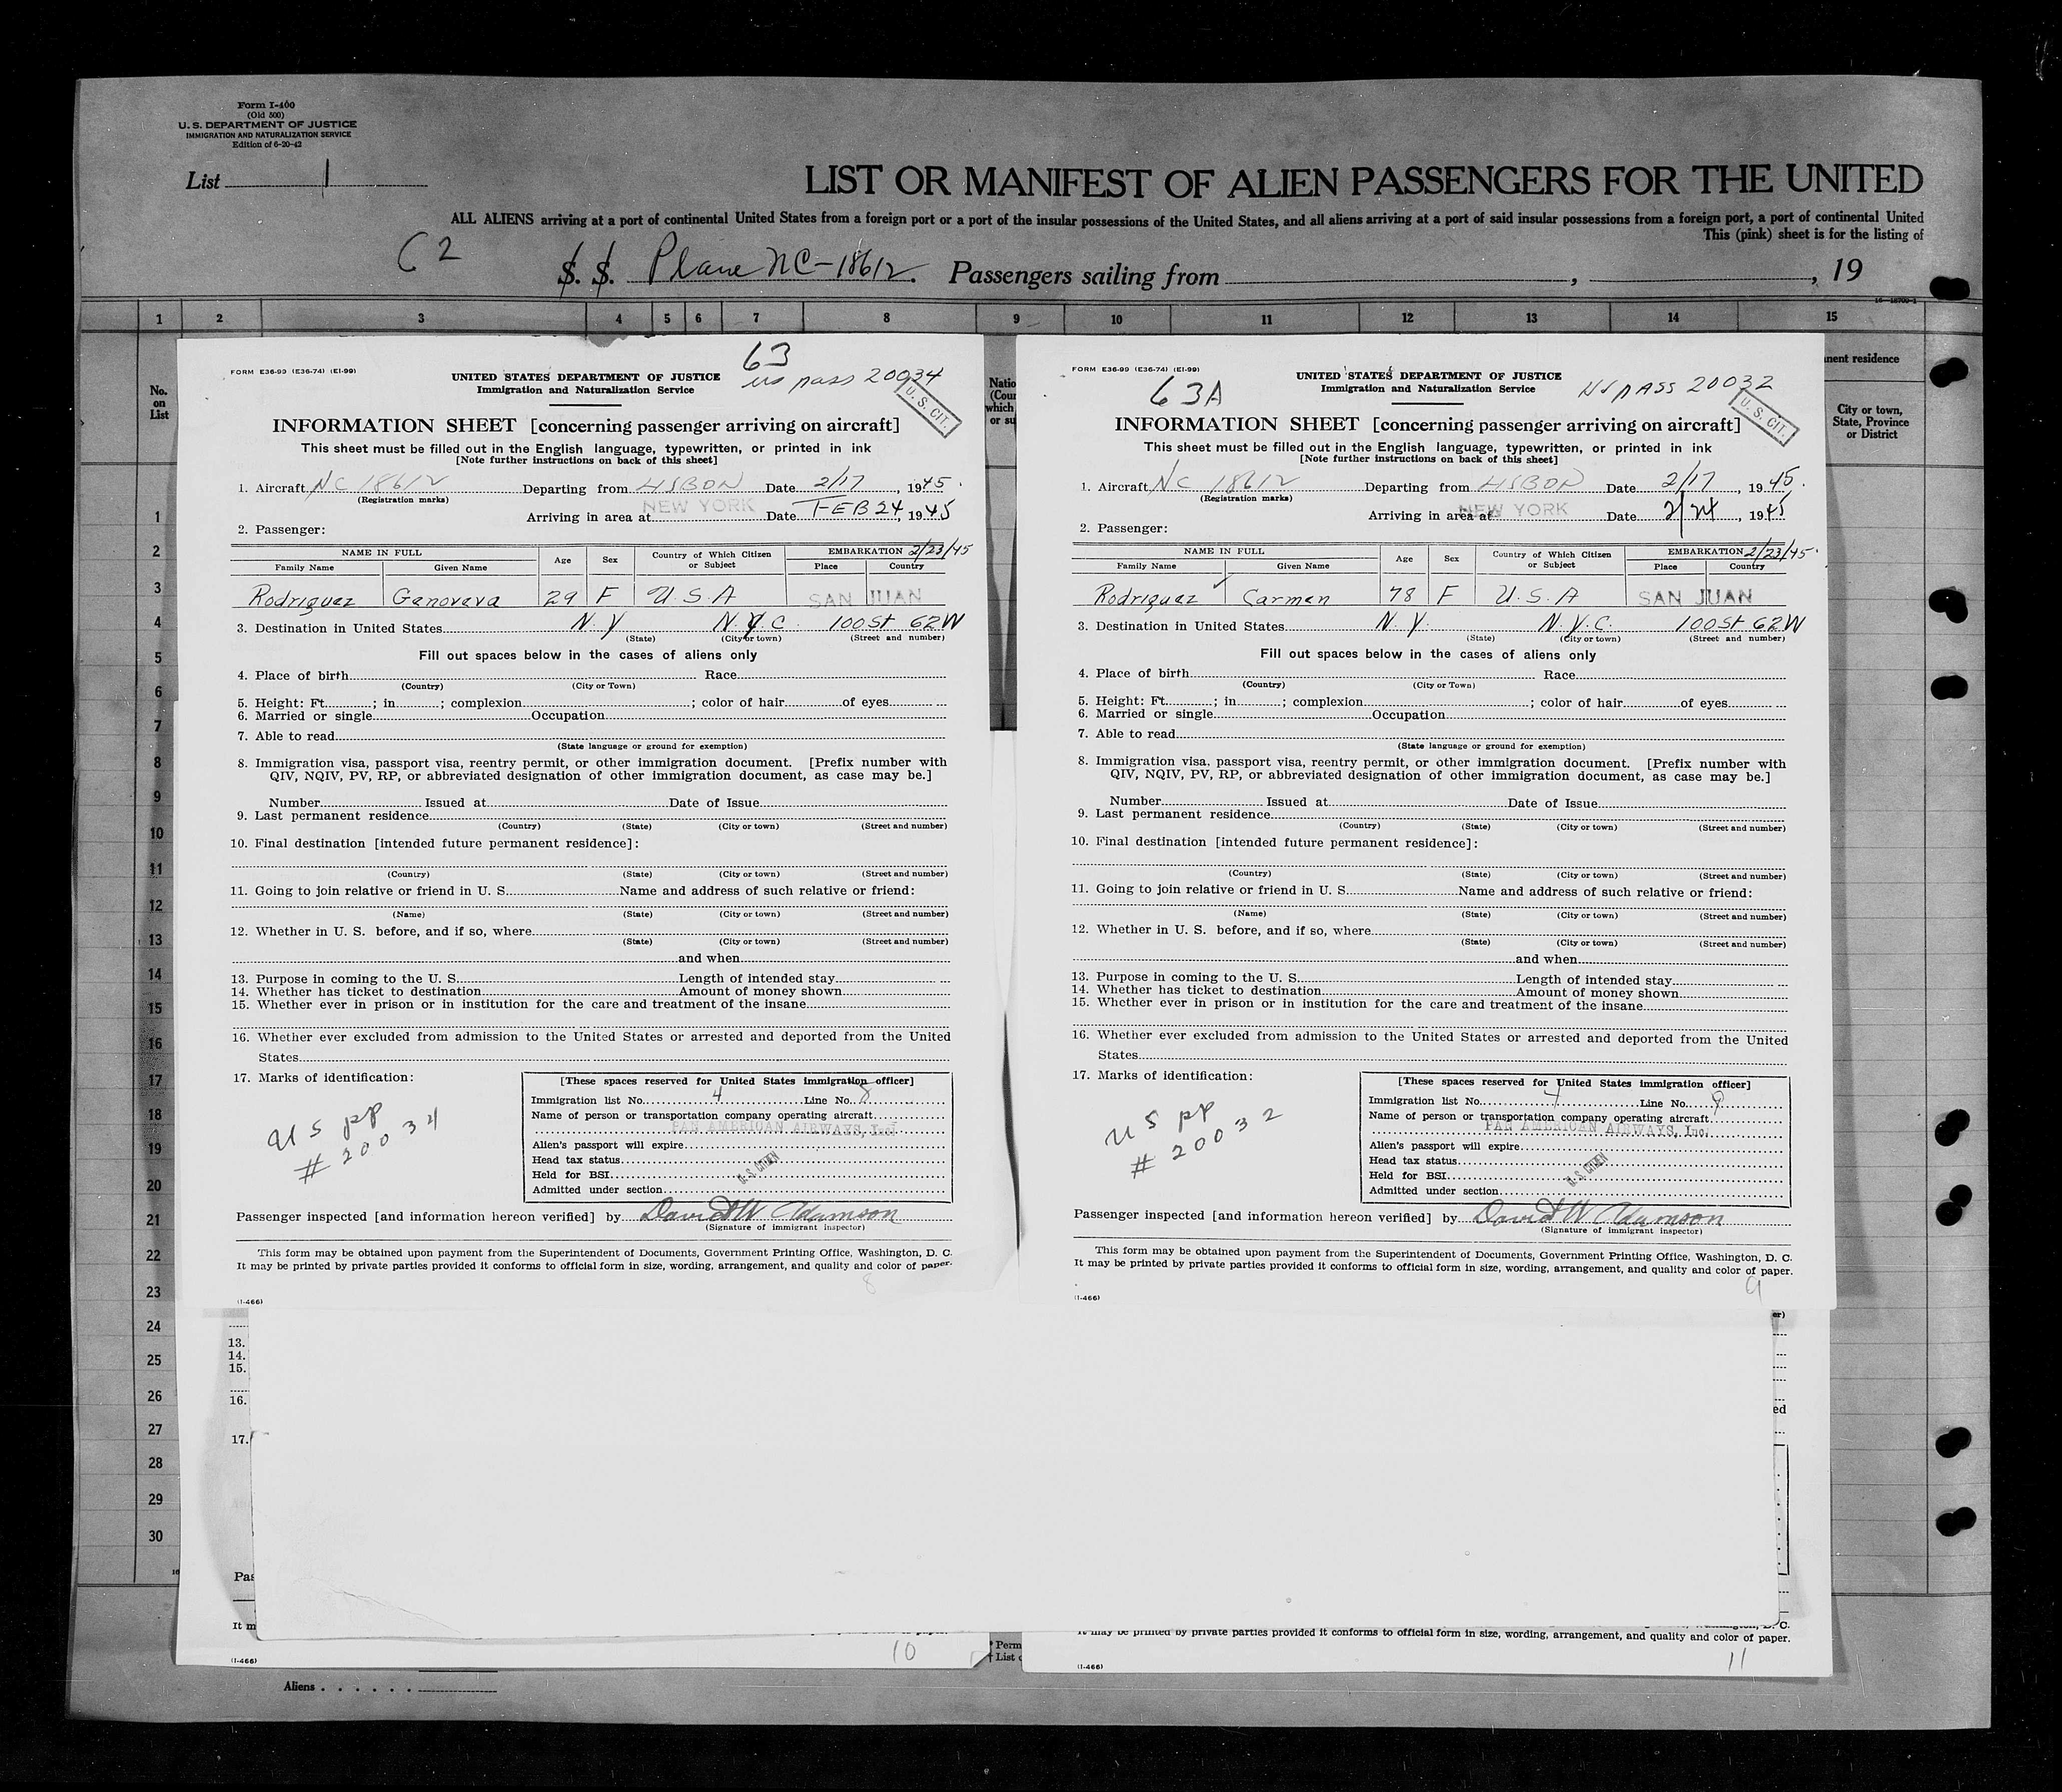 Form I-400
(Old 500)
U. S. DEPARTMENT OF JUSTICE
IMMIGRATION AND NATURALIZATION SERVICE
Edition of 6-20-42
List 1
LIST OR MANIFEST OF ALIEN PASSENGERS FOR THE UNITED
ALL ALIENS arriving at a port of continental United States from a foreign port or a port of the insular possessions of the United States, and all aliens arriving at a port of said insular possessions from a foreign port, a port of continental United
This (pink) sheet is for the listing of
C 2
S. S. Plane NC-18612. Passengers sailing from , , 19
1 2 3 4 5 6 7 8 9 10 11 12 13 14 15
No.
on
List
1
2
3
4
5
6
7
8
9
10
11
12
13
14
15
16
17
18
19
20
21
22
23
24
25
26
27
28
29
30
63
FORM E36-99 (E36-74) (EI-99)
UNITED STATES DEPARTMENT OF JUSTICE
us pass 20034
Immigration and Naturalization Service
U. S. CIT.
INFORMATION SHEET [concerning passenger arriving on aircraft]
This sheet must be filled out in the English language, typewritten, or printed in ink
[Note further instructions on back of this sheet]
1. Aircraft NC 18612 Departing from LISBON Date 2/17, 1945.
(Registration marks)
Arriving in area at NEW YORK Date FEB 24, 1945
2. Passenger:
NAME IN FULL Age Sex Country of Which Citizen or Subject EMBARKATION 2/23/45
Family Name Given Name Place Country
Rodriguez Genoveva 29 F U.S.A SAN JUAN
3. Destination in United States N.Y N.Y.C. 100 St 62W
(State) (City or town) (Street and number)
Fill out spaces below in the cases of aliens only
4. Place of birth Race
(Country) (City or Town)
5. Height: Ft. ; in ; complexion ; color of hair of eyes
6. Married or single Occupation
7. Able to read
(State language or ground for exemption)
8. Immigration visa, passport visa, reentry permit, or other immigration document. [Prefix number with
QIV, NQIV, PV, RP, or abbreviated designation of other immigration document, as case may be.]
Number Issued at Date of Issue
9. Last permanent residence
(Country) (State) (City or town) (Street and number)
10. Final destination [intended future permanent residence]:
(Country) (State) (City or town) (Street and number)
11. Going to join relative or friend in U. S. Name and address of such relative or friend:
(Name) (State) (City or town) (Street and number)
12. Whether in U. S. before, and if so, where
(State) (City or town) (Street and number)
and when
13. Purpose in coming to the U. S. Length of intended stay
14. Whether has ticket to destination Amount of money shown
15. Whether ever in prison or in institution for the care and treatment of the insane
16. Whether ever excluded from admission to the United States or arrested and deported from the United
States
17. Marks of identification:
U S pp
# 20034
[These spaces reserved for United States immigration officer]
Immigration list No. 4 Line No. 8
Name of person or transportation company operating aircraft
PAN AMERICAN AIRWAYS, Inc.
Alien's passport will expire
Head tax status
Held for BSI
U. S. CITIZEN
Admitted under section
Passenger inspected [and information hereon verified] by David W Adamson
(Signature of immigrant inspector)
This form may be obtained upon payment from the Superintendent of Documents, Government Printing Office, Washington, D. C.
It may be printed by private parties provided it conforms to official form in size, wording, arrangement, and quality and color of paper.
8
(I-466)
Natio
(Coun
which
or su
FORM E36-99 (E36-74) (EI-99)
63A
UNITED STATES DEPARTMENT OF JUSTICE
US PASS 20032
Immigration and Naturalization Service
U. S. CIT.
INFORMATION SHEET [concerning passenger arriving on aircraft]
This sheet must be filled out in the English language, typewritten, or printed in ink
[Note further instructions on back of this sheet]
1. Aircraft NC 18612 Departing from LISBON Date 2/17, 1945.
(Registration marks)
Arriving in area at NEW YORK Date 2/24, 1945
2. Passenger:
NAME IN FULL Age Sex Country of Which Citizen or Subject EMBARKATION 2/23/45.
Family Name Given Name Place Country
Rodriguez Carmen 78 F U.S.A SAN JUAN
3. Destination in United States N.Y. N.Y.C. 100 St 62W
(State) (City or town) (Street and number)
Fill out spaces below in the cases of aliens only
4. Place of birth Race
(Country) (City or Town)
5. Height: Ft. ; in ; complexion ; color of hair of eyes
6. Married or single Occupation
7. Able to read
(State language or ground for exemption)
8. Immigration visa, passport visa, reentry permit, or other immigration document. [Prefix number with
QIV, NQIV, PV, RP, or abbreviated designation of other immigration document, as case may be.]
Number Issued at Date of Issue
9. Last permanent residence
(Country) (State) (City or town) (Street and number)
10. Final destination [intended future permanent residence]:
(Country) (State) (City or town) (Street and number)
11. Going to join relative or friend in U. S. Name and address of such relative or friend:
(Name) (State) (City or town) (Street and number)
12. Whether in U. S. before, and if so, where
(State) (City or town) (Street and number)
and when
13. Purpose in coming to the U. S. Length of intended stay
14. Whether has ticket to destination Amount of money shown
15. Whether ever in prison or in institution for the care and treatment of the insane
16. Whether ever excluded from admission to the United States or arrested and deported from the United
States
17. Marks of identification:
U S pp
# 20032
[These spaces reserved for United States immigration officer]
Immigration list No. 4 Line No. 9
Name of person or transportation company operating aircraft
PAN AMERICAN AIRWAYS, Inc.
Alien's passport will expire
Head tax status
Held for BSI
U. S. CITIZEN
Admitted under section
Passenger inspected [and information hereon verified] by David W Adamson
(Signature of immigrant inspector)
This form may be obtained upon payment from the Superintendent of Documents, Government Printing Office, Washington, D. C.
It may be printed by private parties provided it conforms to official form in size, wording, arrangement, and quality and color of paper.
9
(I-466)
nent residence
City or town,
State, Province
or District
13.
14.
15.
16.
17.
Pas
It m
10
(I-466)
er)
ed
It may be printed by private parties provided it conforms to official form in size, wording, arrangement, and quality and color of paper.
11
(I-466)
* Perm
† List o
Aliens